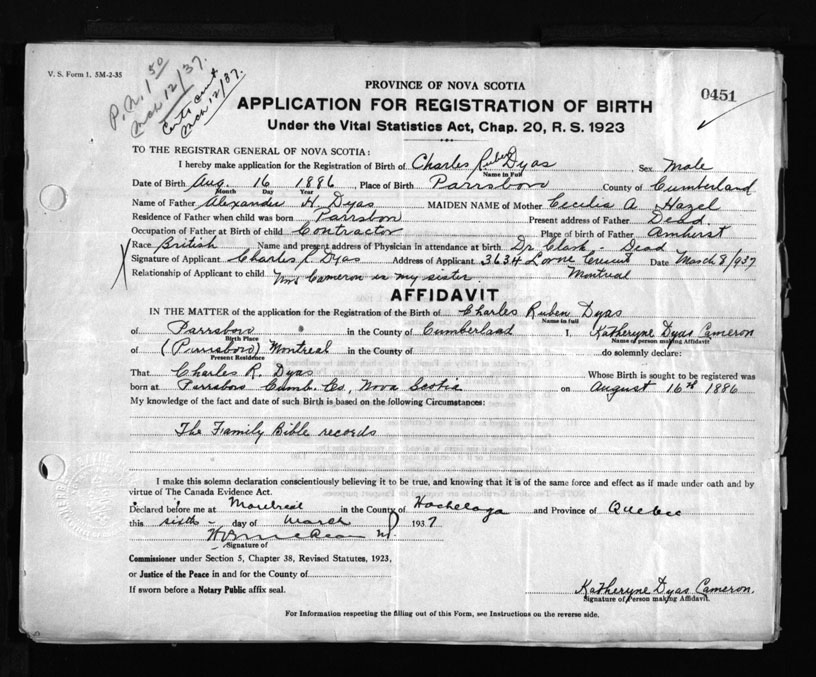 V. S. Form 1. 5M-2-35
P.N. 1.50
Mch 12/37.
Cert sent
Mch 12/37.
0451
PROVINCE OF NOVA SCOTIA
APPLICATION FOR REGISTRATION OF BIRTH
Under the Vital Statistics Act, Chap. 20, R. S. 1923
TO THE REGISTRAR GENERAL OF NOVA SCOTIA:
I hereby make application for the Registration of Birth of Charles Ruben Dyas Sex Male
Name in Full
Date of Birth Aug. 16 1886 Place of Birth Parrsboro County of Cumberland
Month Day Year
Name of Father Alexander H. Dyas MAIDEN NAME of Mother Cecilia A Hazel
Residence of Father when child was born Parrsboro Present address of Father Dead
Occupation of Father at Birth of child Contractor Place of birth of Father Amherst
Race British Name and present address of Physician in attendance at birth Dr Clark - Dead
Signature of Applicant Charles R. Dyas Address of Applicant 3634 Lorne Crescent Date March 8/937
Relationship of Applicant to child Mrs Cameron is my sister Montreal
AFFIDAVIT
IN THE MATTER of the application for the Registration of the Birth of Charles Ruben Dyas
Name in full
of Parrsboro in the County of Cumberland I, Katheryne Dyas Cameron
Birth Place Name of person making Affidavit
of (Parrsboro) Montreal in the County of do solemnly declare:
Present Residence
That Charles R. Dyas Whose Birth is sought to be registered was
born at Parrsboro Cumb. Co, Nova Scotia on August 16th 1886
My knowledge of the fact and date of such Birth is based on the following Circumstances:
The Family Bible records
I make this solemn declaration conscientiously believing it to be true, and knowing that it is of the same force and effect as if made under oath and by
virtue of The Canada Evidence Act.
Declared before me at Montreal in the County of Hochelaga and Province of Quebec
this sixth - day of March 1937
Signature of
Commissioner under Section 5, Chapter 38, Revised Statutes, 1923,
or Justice of the Peace in and for the County of
If sworn before a Notary Public affix seal.
Katheryne Dyas Cameron.
Signature of Person making Affidavit.
For Information respecting the filling out of this Form, see Instructions on the reverse side.